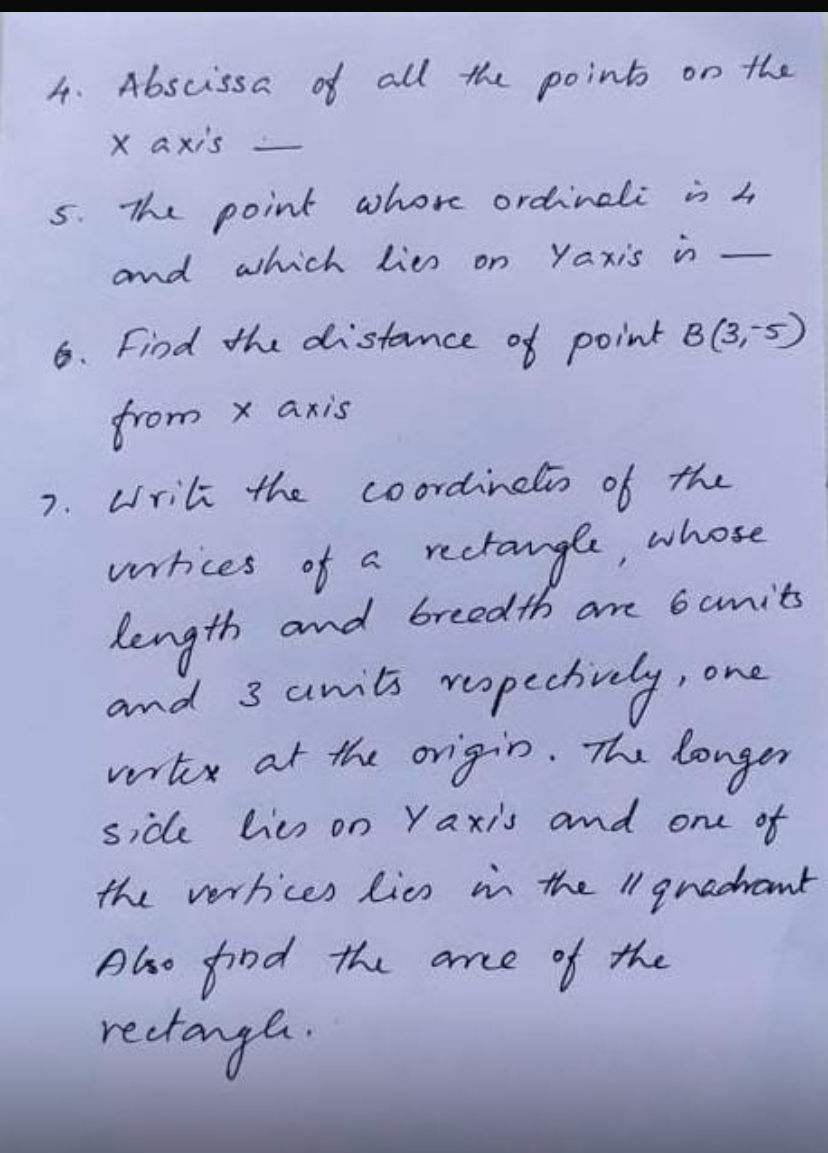 4. Abscissa of all the points on the
X axis —
5. The point whose ordinate is 4
and which lies on Y axis is —
6. Find the distance of point B(3,-5)
from x axis
7. Write the coordinates of the
vertices of a rectangle, whose
length and breedth are 6 units
and 3 units respectively, one
vertex at the origin. The longer
side lies on Y axis and one of
the vertices lies in the II quadrant
Also find the area of the
rectangle.